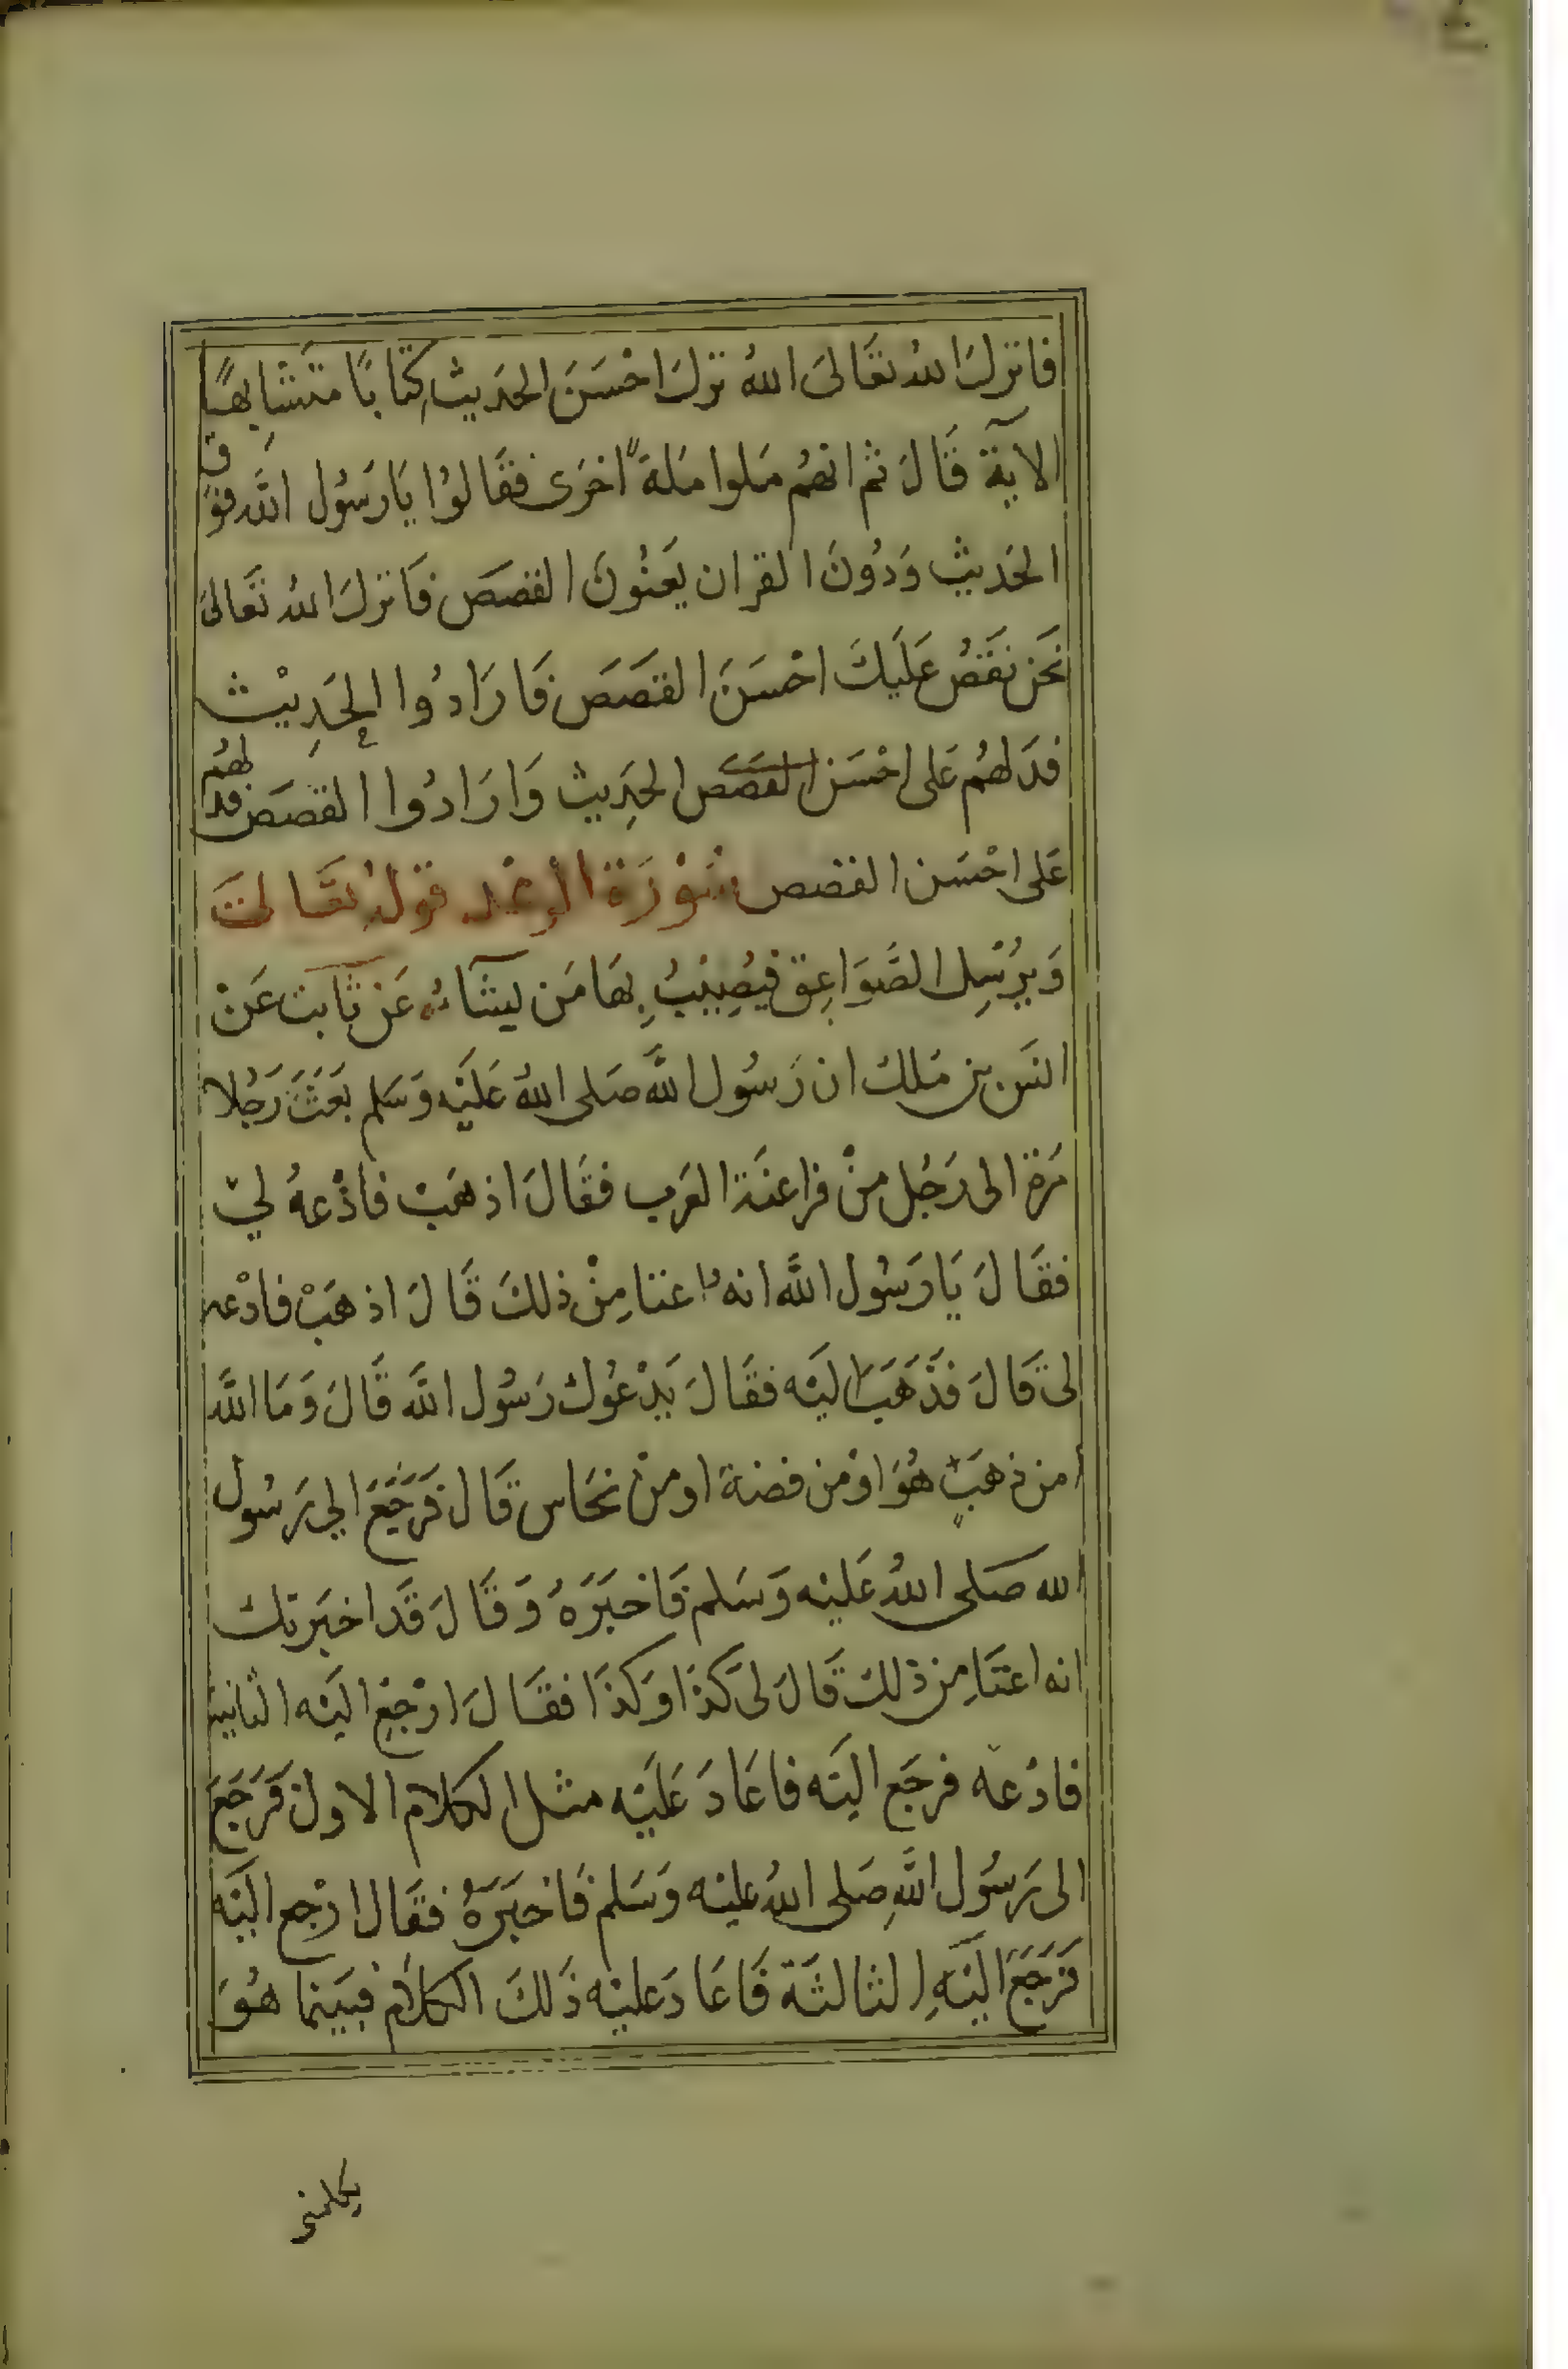 فانزلَ اللهُ تعَالىَ اللهُ نزلَ احْسَنَ الحَدِيث كِتابًا متَشَابهًا
الآية قَالَ ثم انهُم مَلوا مَلةً اخرَى فقَالوُا يَا رَسُول اللَّه فوَق
الحَديث وَدُونَ القران يَعنُونَ القصَصَ فَانزلَ اللهُ تَعَالىَ
نَحَن نقَصُ عَلَيكَ احْسَنَ القصَصَ فَارَادُوا الحَدِيْث
فدَلهُم عَلى احْسَن القصَص الحَدِيث وَارَادُوا القصَصَ فدلهُم
عَلى احْسَن القصص سُوْرَة الرعْد قولهُ تعَالىَ
وَيرُسِل الصَّوَاعِق فيُصِيْبُ بِهَا مَن يشَآءُ عَنْ ثَابت عَنْ
انَس بن مَلك ان رَسُول اللَّه صَلى اللهُ عَليْه وَسَلم بَعَثَ رَجُلا
مَرة الى رَجُل مِنْ فراعنَة العَرب فقَالَ اذهَبْ فادْعهُ ليْ
فقَالَ يَا رَسُول اللَّه انهُ اعتا مِنْ ذلكَ قَالَ اذهَبْ فادْعه
لى قَالَ فذَهَبَ اليَه فقَالَ يَدْعُوك رَسُول اللَّه قَالَ وَمَا اللَّه
امن ذهَبٍ هُوَ اوْ من فضة او منْ نحَاس قَال فرَجَعَ الي رَسُول
الله صَلى اللهُ عَليْه وَسَلم فَاخبَرَهُ وَقَالَ قَد اخبَرتك
انه اعتَا مِن ذلكَ قَالَ لى كَذا وَكذَا فقَالَ ارْجَع اليَه الثانية
فادْعه فرجَع اليَه فاعَادَ عَلَيْه مثل الكلام الاول فَرَجَعَ
الى رَسُول اللَّهِ صَلى اللهُ عليْه وَسَلم فَاخبَرَهُ فقَال ارْجع اليَه
فرَجَعَ اليَهِ الثالثَة فَاعَادَ عليْه ذَلكَ الكلَام فبَينما هُوَ
يكلمنى